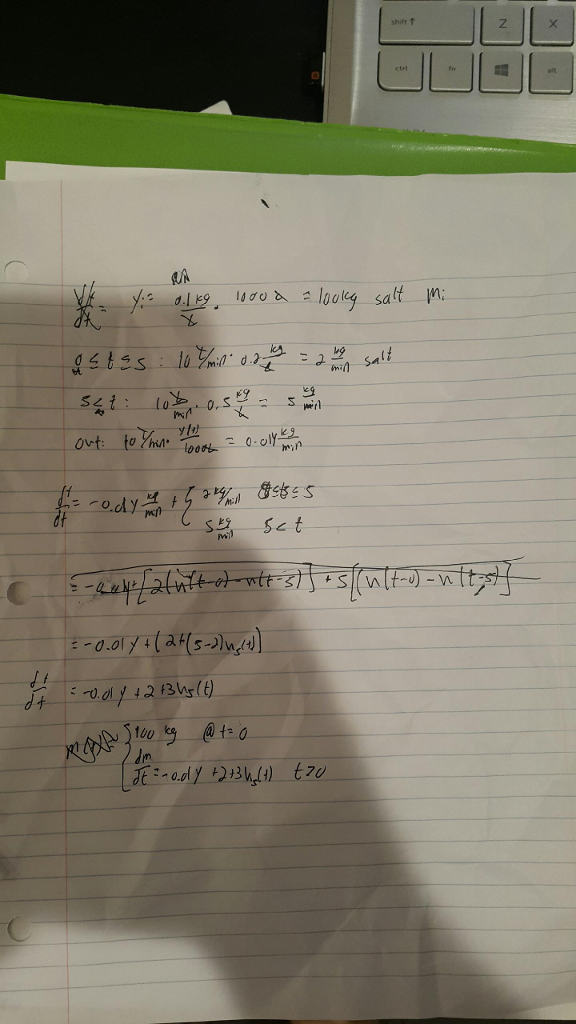 shift ↑ Z X
ctrl fn alt
yᵢ = 0.1 kg/L · 1000 L = 100 kg salt mᵢ
0 ≤ t ≤ 5 : 10 L/min · 0.2 kg/L = 2 kg/min salt
5 < t : 10 L/min · 0.5 kg/L = 5 kg/min
out: 10 L/min · y(t)/1000L = 0.01y kg/min
= -0.01y kg/min + { 2 kg/min 0 ≤ t ≤ 5
5 kg/min 5 < t
[2(u(t-0) - u(t-5)] + 5[(u(t-0) - u(t-5)]
= -0.01y + [2+(5-2)u₅(t)]
= -0.01y + 2 + 3u₅(t)
{ 100 kg @ t=0
dm/dt = -0.01y + 2 + 3u₅(t) t>0